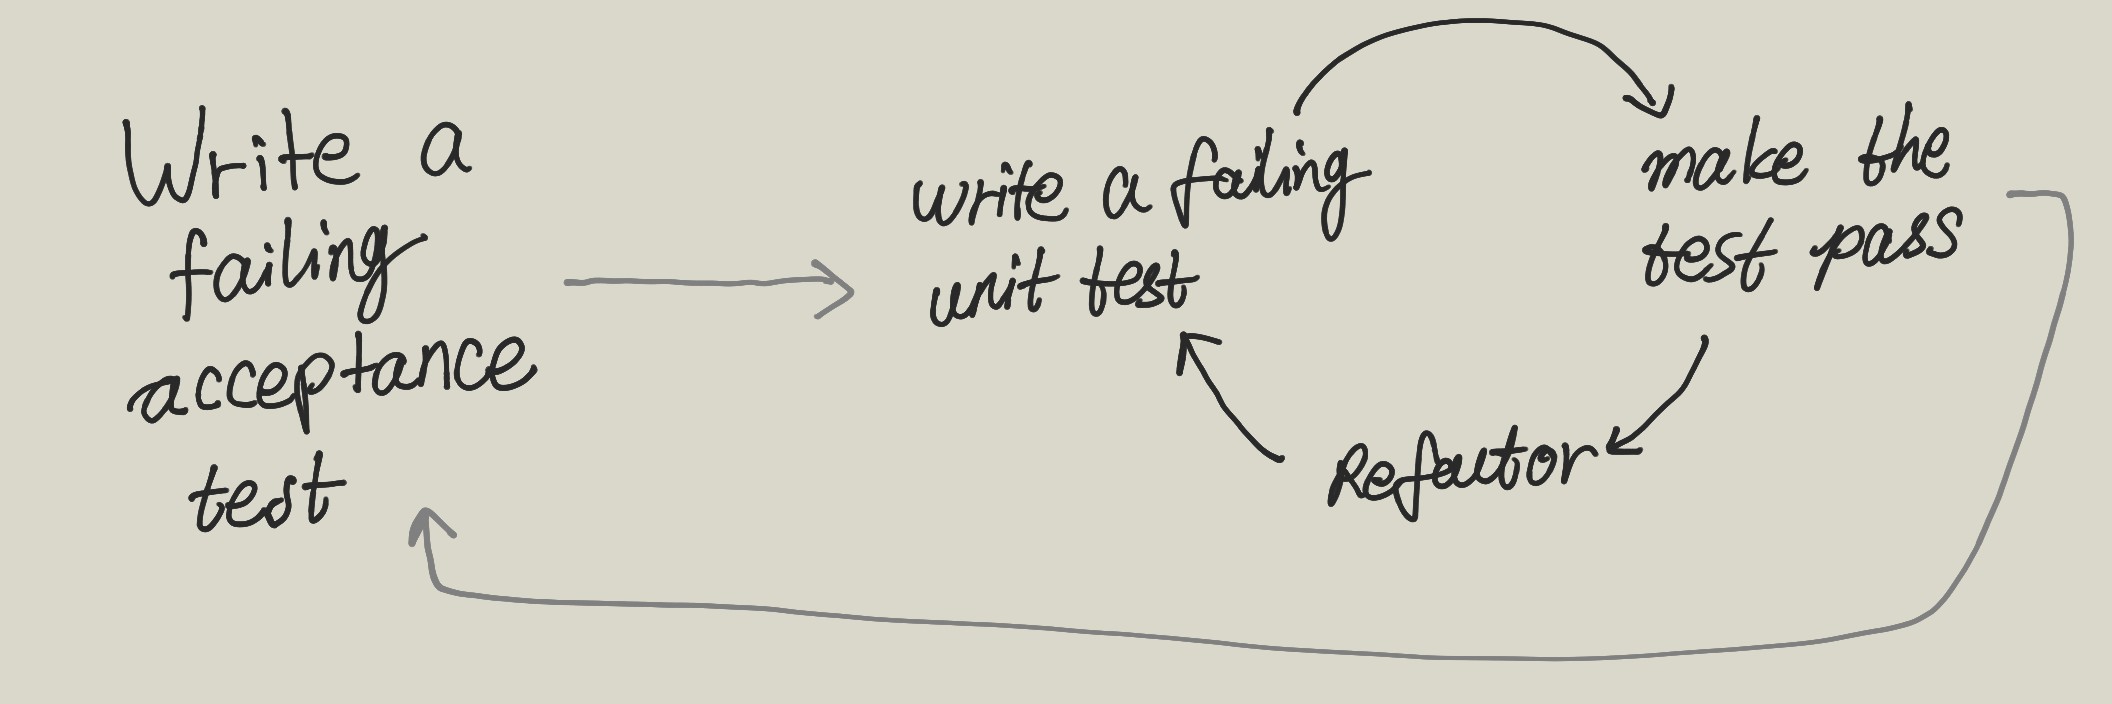 Write a
failing
acceptance
test
write a failing
unit test
make the
test pass
Refactor